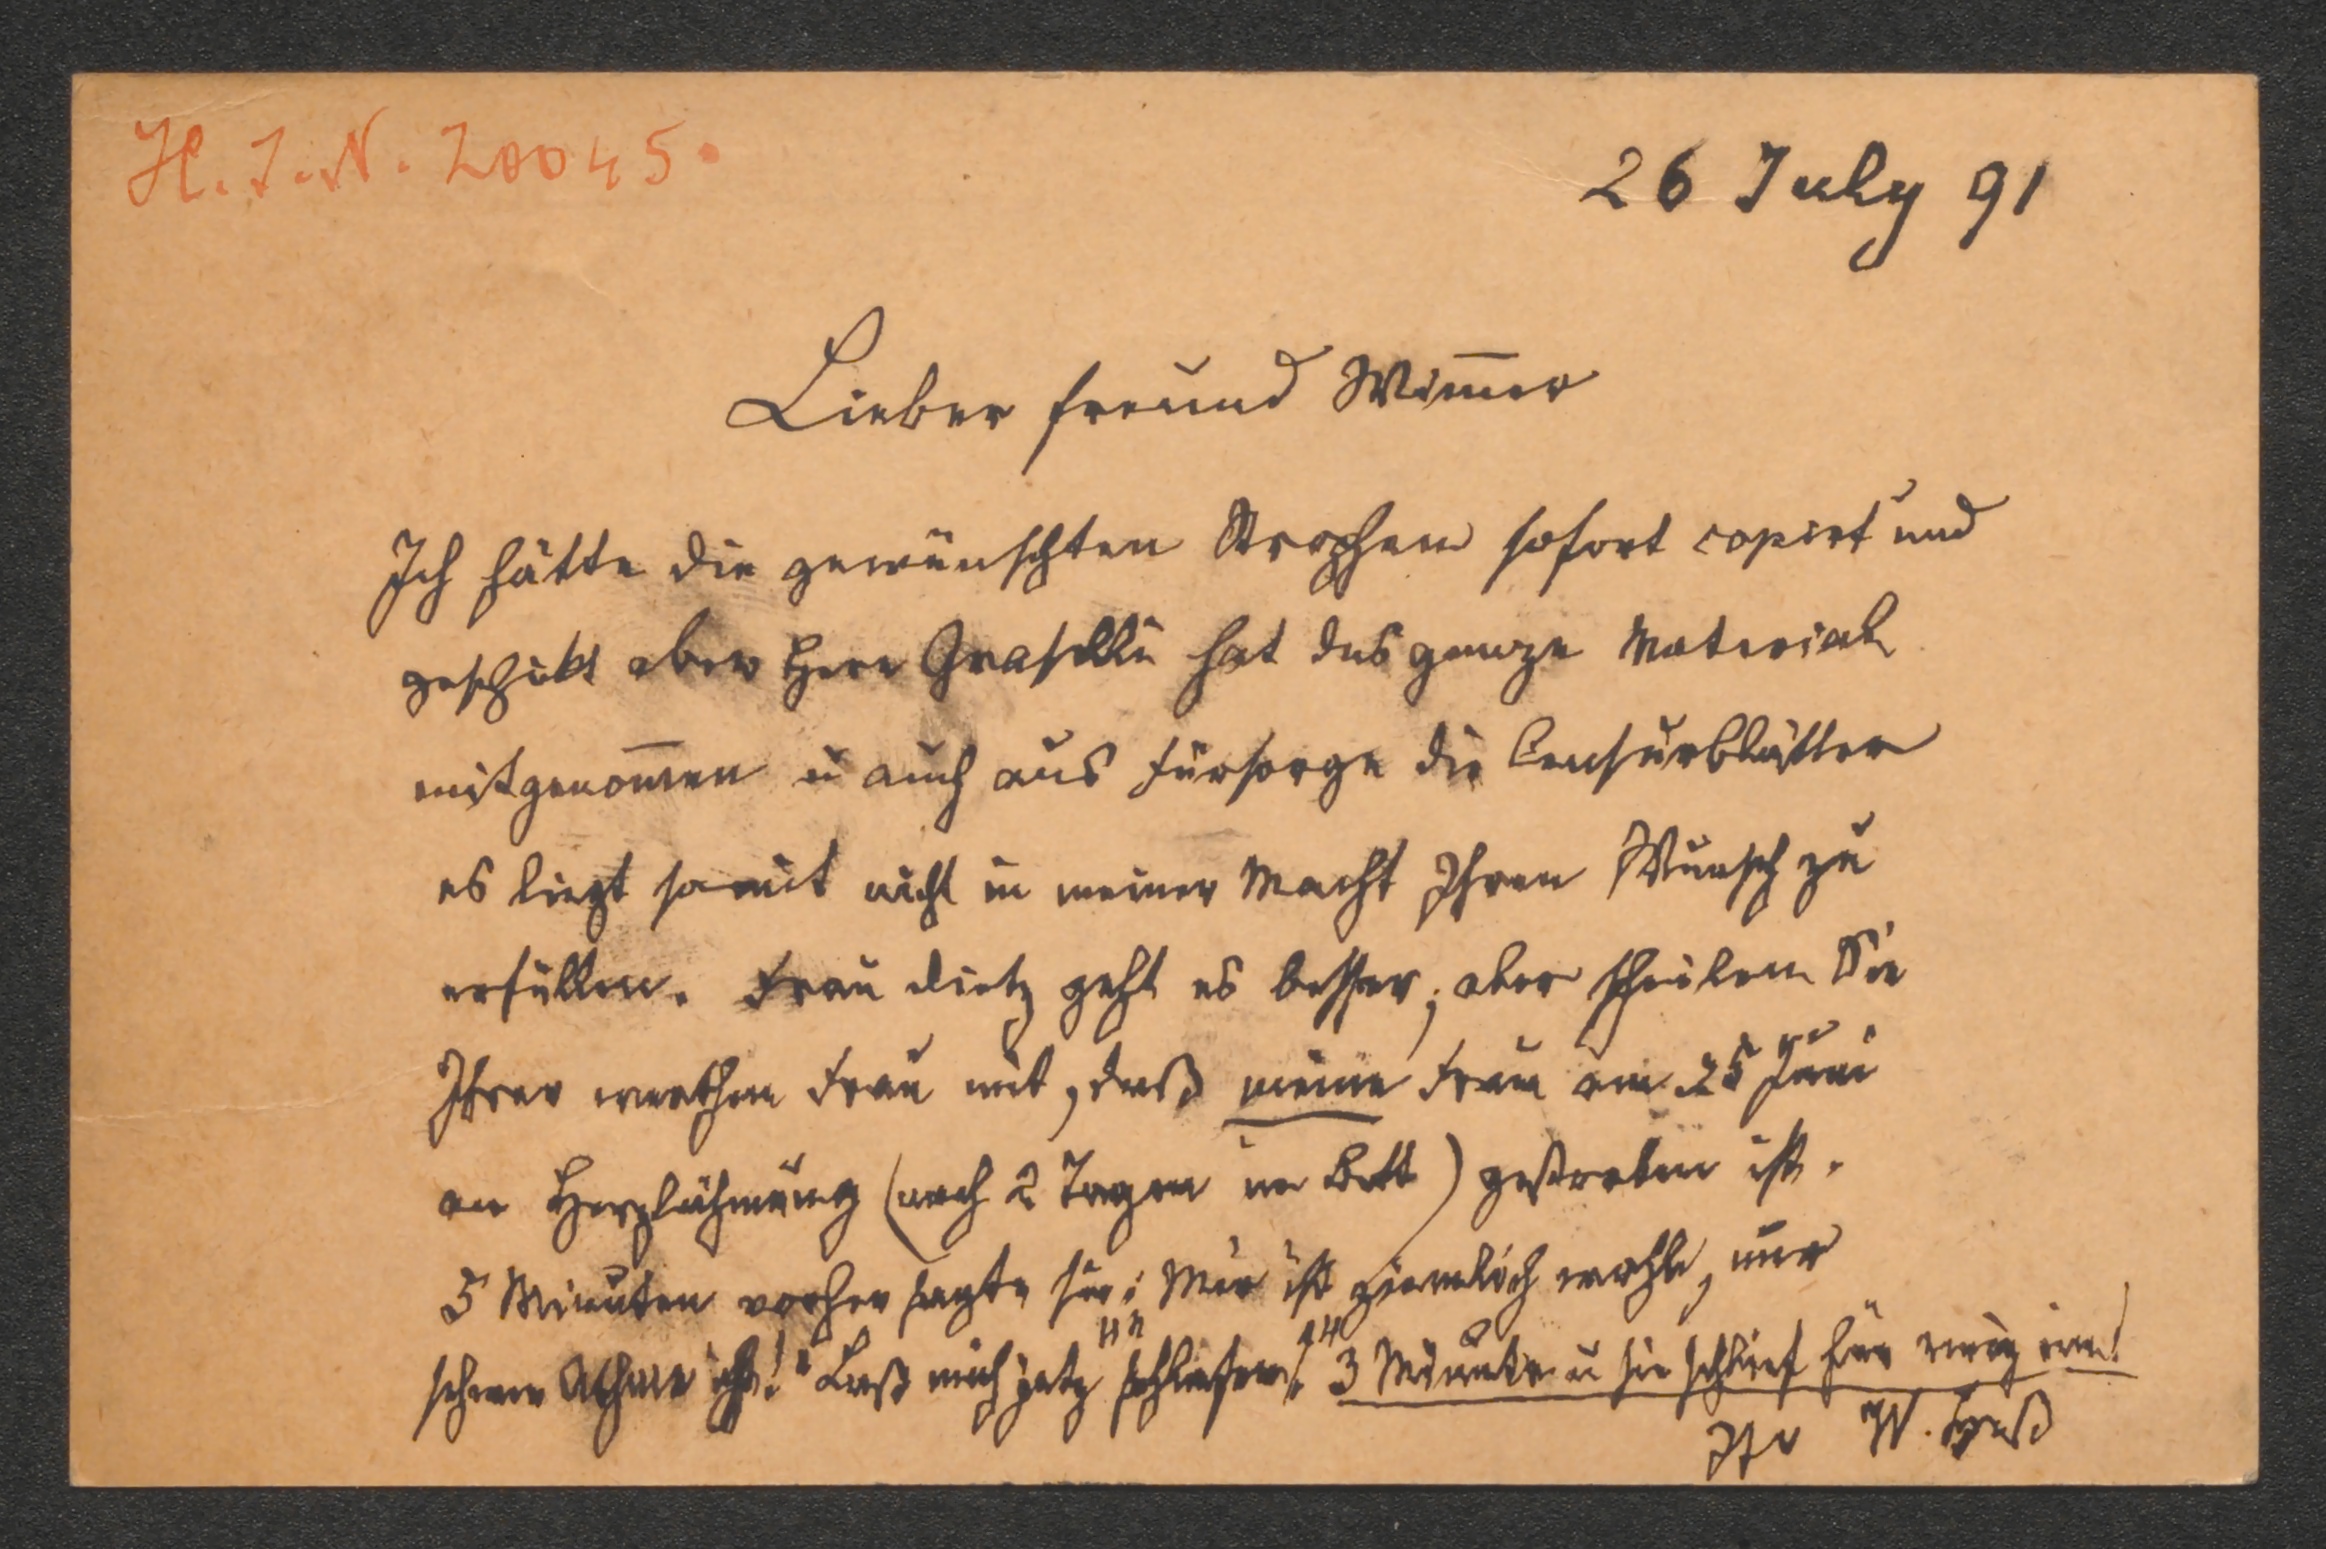 H. I. N. 20045.
26 July 91
Lieber Freund Wim̅er
Ich hätte die gewünschten Strophen sofort copirt und
geschickt aber Herr Graselli hat das ganze Material
mitgenom̅en u auch aus Fürsorge die Censurblätter
es liegt somit nicht in meiner Macht Ihren Wunsch zu
erfüllen. Frau Dietz geht es besser; aber theilen Sie
Ihrer werthen Frau mit, daß meine Frau am 25 Juni
an Herzlähmung (nach 2 Tagen im Bett) gestorben ist.
5 Minuten vorher sagte sie: Mir ist ziemlich wohl, nur
schwer Athme ich! "Laß mich jetz schlafen!" 3 Minuten u sie schlief für ewig ein!
Ihr W.